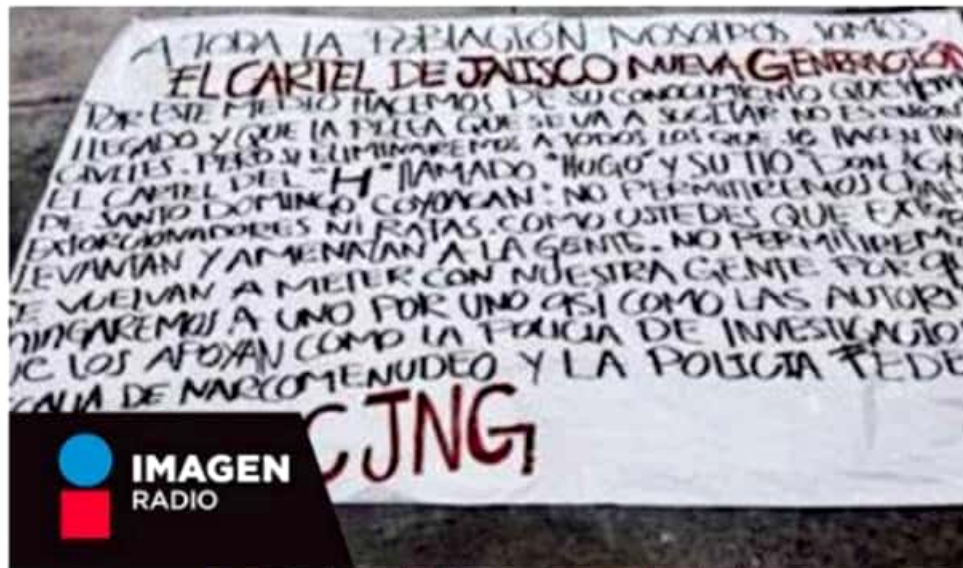 A TODA LA POBLACIÓN NOSOTROS SOMOS
EL CARTEL DE JALISCO NUEVA GENERACIÓN
POR ESTE MEDIO HACEMOS DE SU CONOCIMIENTO QUE HEM
LLEGADO Y QUE LA PELEA QUE SE VA A SUCITAR NO ES CON
CIVILES. PERO SI ELIMINAREMOS A TODOS LOS QUE SE HACEN
EL CARTEL DEL "H" LLAMADO "HUGO" Y SU TIO "DON
DE SANTO DOMINGO COYOACAN: NO PERMITIREMOS
EXTORCIONADORES NI RATAS. COMO USTEDES QUE
LEVANTAN Y AMENAZAN A LA GENTE. NO PERMITIREM
E VUELVAN A METER CON NUESTRA GENTE POR QU
A UNO POR UNO ASI COMO LAS AUTORI
LOS APOYAN COMO LA POLICIA DE INVESTIGACIO
CALIA DE NARCOMENUDEO Y LA POLICIA FEDE
CJNG
IMAGEN
RADIO